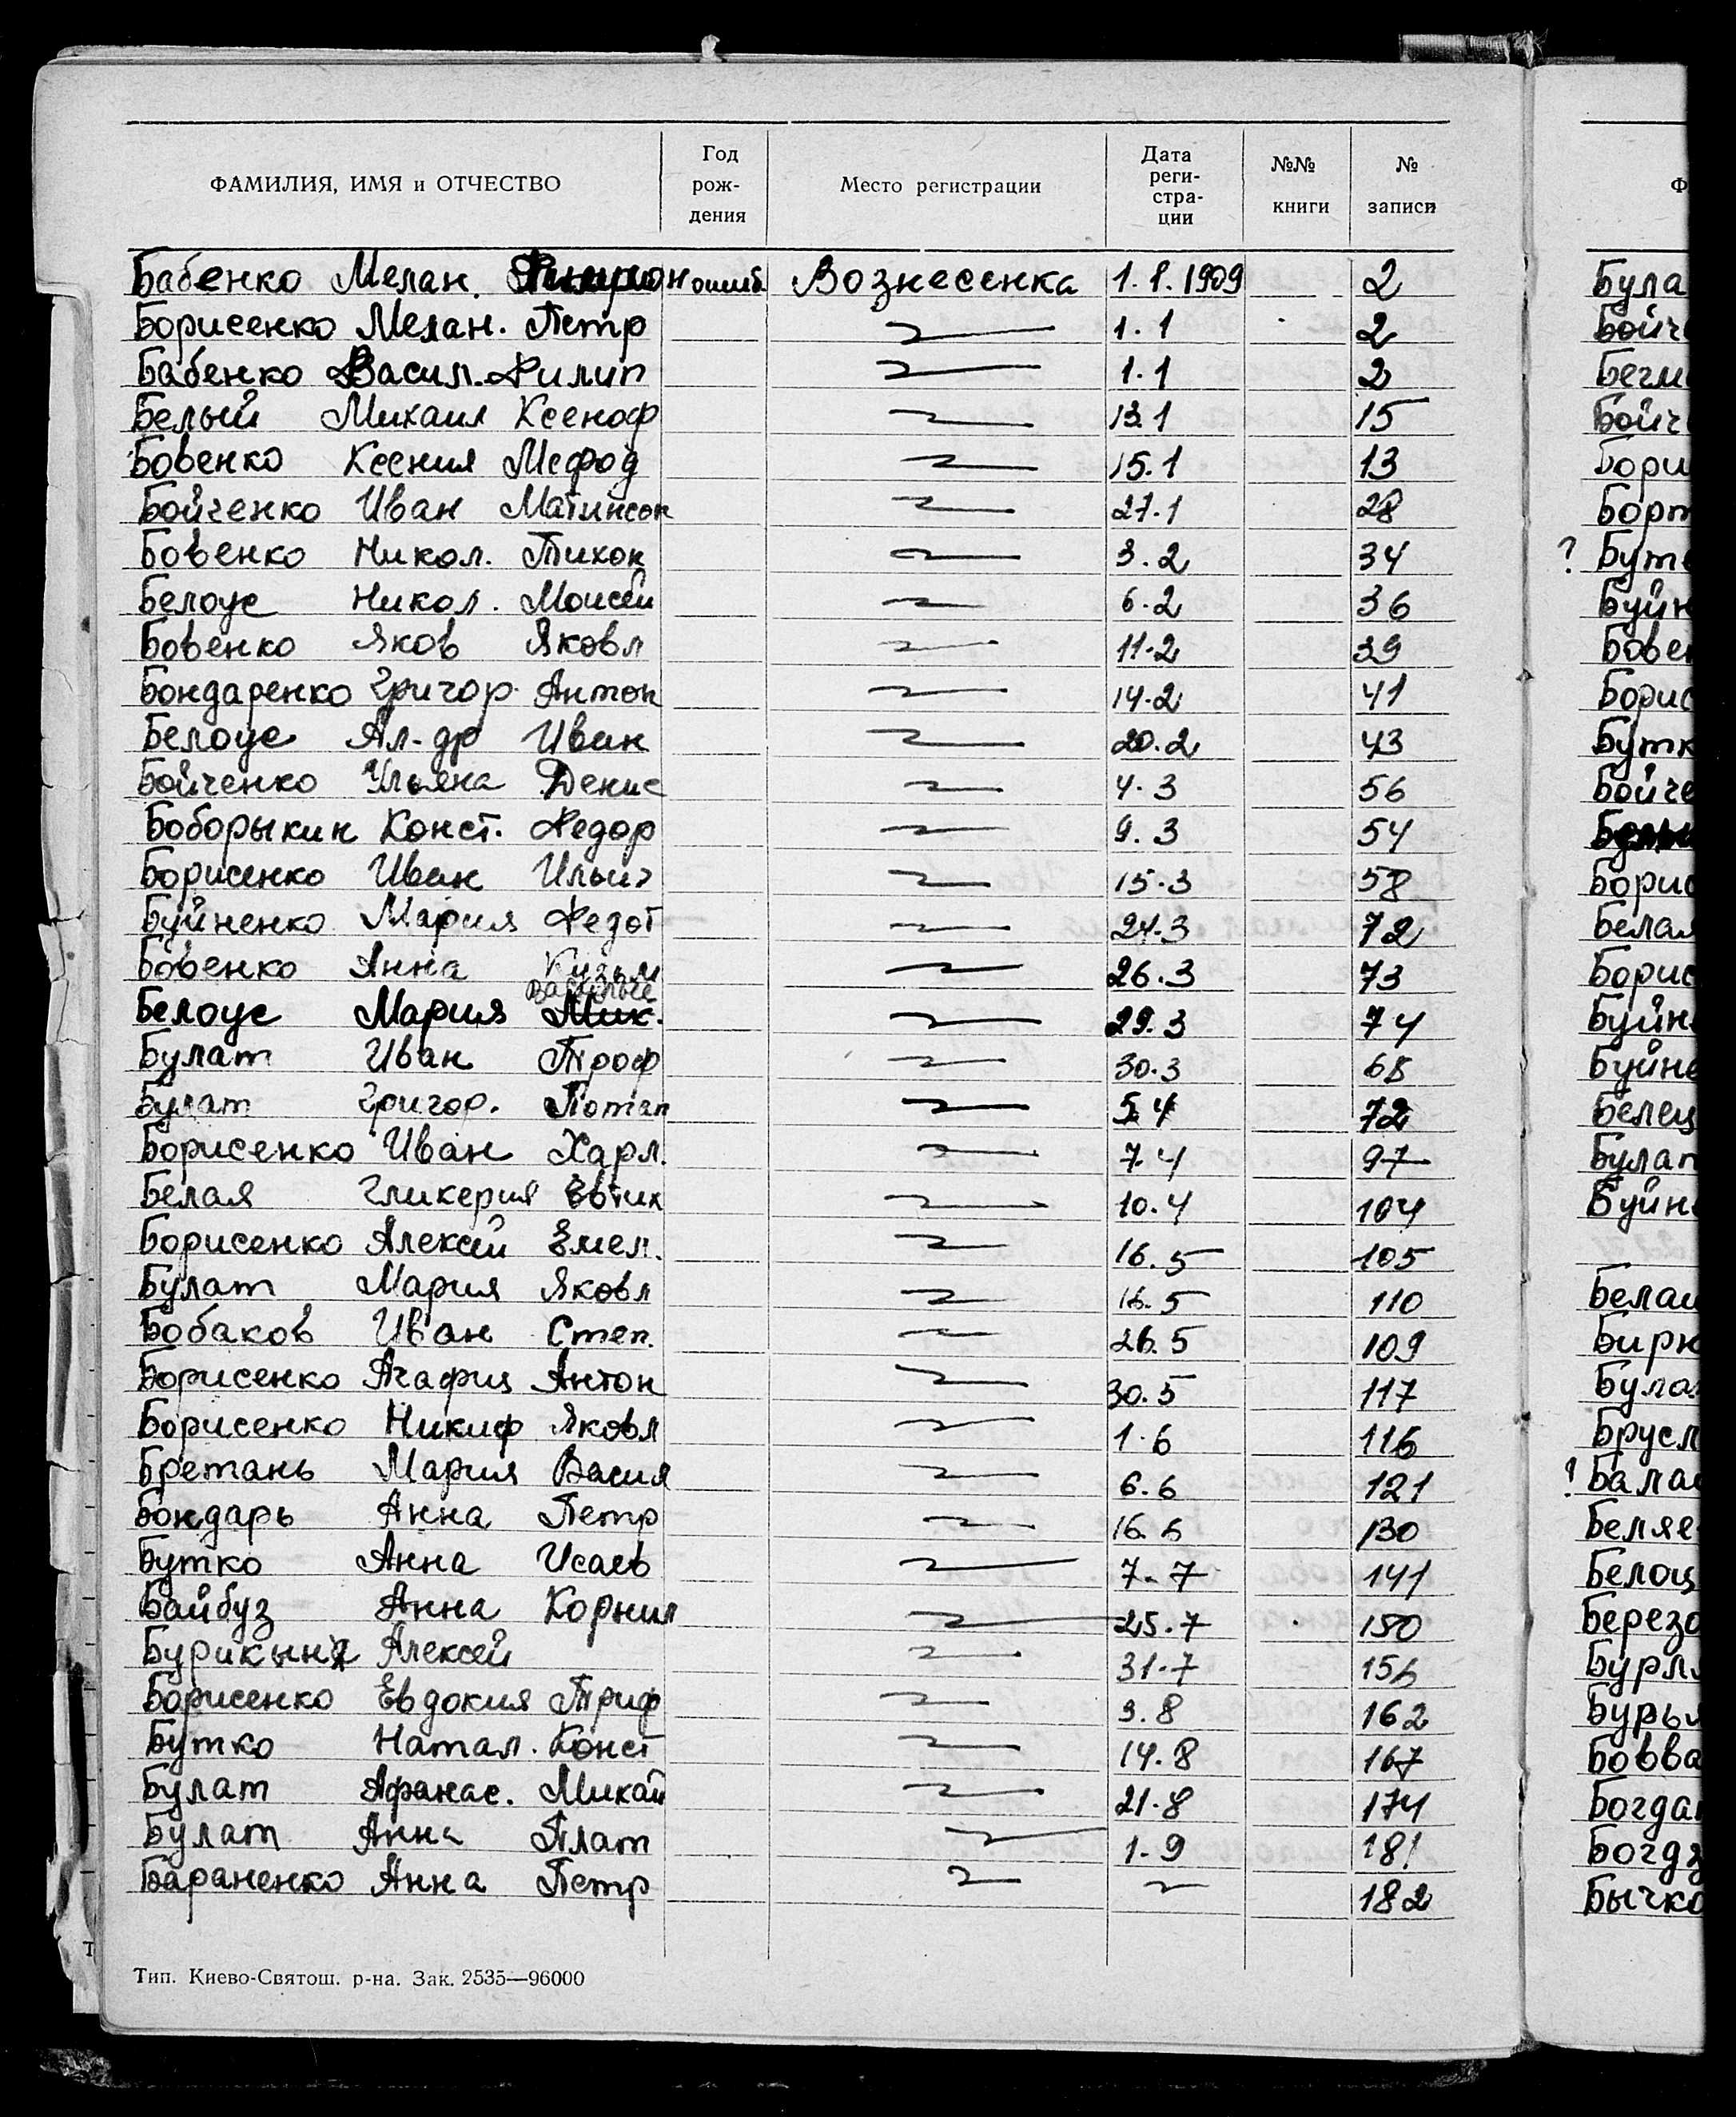 ФАМИЛИЯ, ИМЯ и ОТЧЕСТВО Год рож- дения Место регистрации Дата реги- стра- ции №№ книги № записи
Бабенко Мелан. Вознесенка 1.1.1909 2
Борисенко Мелан. Петр 1.1 2
Бабенко Васил. Филип 1.1 2
Белый Михаил Ксеноф 13.1 15
Бовенко Ксения Мефод 15.1 13
Бойченко Иван 27.1 28
Бовенко Никол. Тихон 3.2 34
Белоус Никол. Моисеи 6.2 36
Бовенко Яков Яковл 11.2 39
Бондаренко Григор. Антон 14.2 41
Белоус Ал-др Иван 20.2 43
Бойченко Ульяна Денис 4.3 56
Боборыкин Конст. Федор 9.3 54
Борисенко Иван Ильич 15.3 58
Буйненко Мария Федот 24.3 72
Бовенко Анна Кузьм 26.3 73
Белоус Мария Мик. 29.3 74
Булат Иван Троф 30.3 68
Булат Григор. Потап 5.4 72
Борисенко Иван Харл. 7.4 97
Белая Гликерия Евтих 10.4 104
Борисенко Алексей Емел. 16.5 105
Булат Мария Яковл 16.5 110
Бобаков Иван Степ. 26.5 109
Борисенко Агафия Антон 30.5 117
Борисенко Никиф Яковл 1.6 116
Бретань Мария Васил 6.6 121
Бондарь Анна Петр 16.6 130
Бутко Анна Исаев 7.7 141
Байбуз Анна Корнил 25.7 150
Алексей 31.7 156
Борисенко Евдокия Триф 9.8 162
Бутко Натал. Конст 14.8 167
Булат Афанас. Михай 21.8 174
Булат Анна Плат 1.9 181
Бараненко Анна Петр 182
Тип. Киево-Святош. р-на. Зак. 2535—96000